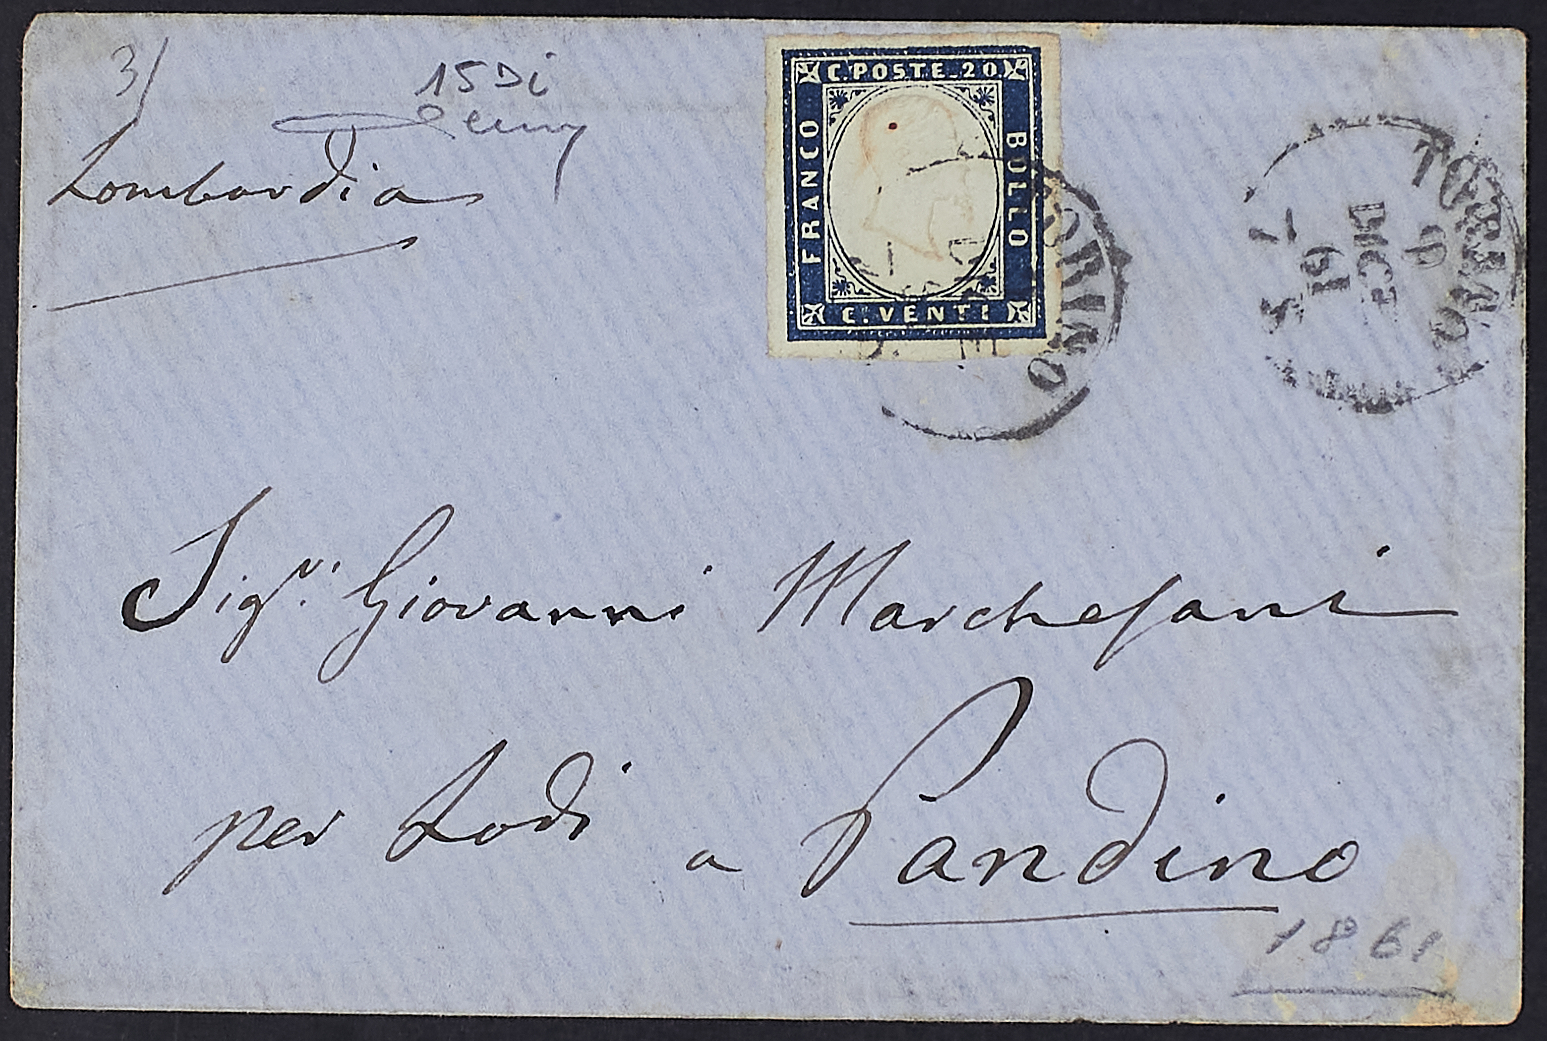 3/
15Di
Lombardia
C. POSTE. 20
FRANCO
BOLLO
C. VENTI
TORINO
TORINO
9
DICE
61
Sigr. Giovanni Marchesani
per Lodi a Pandino
1861